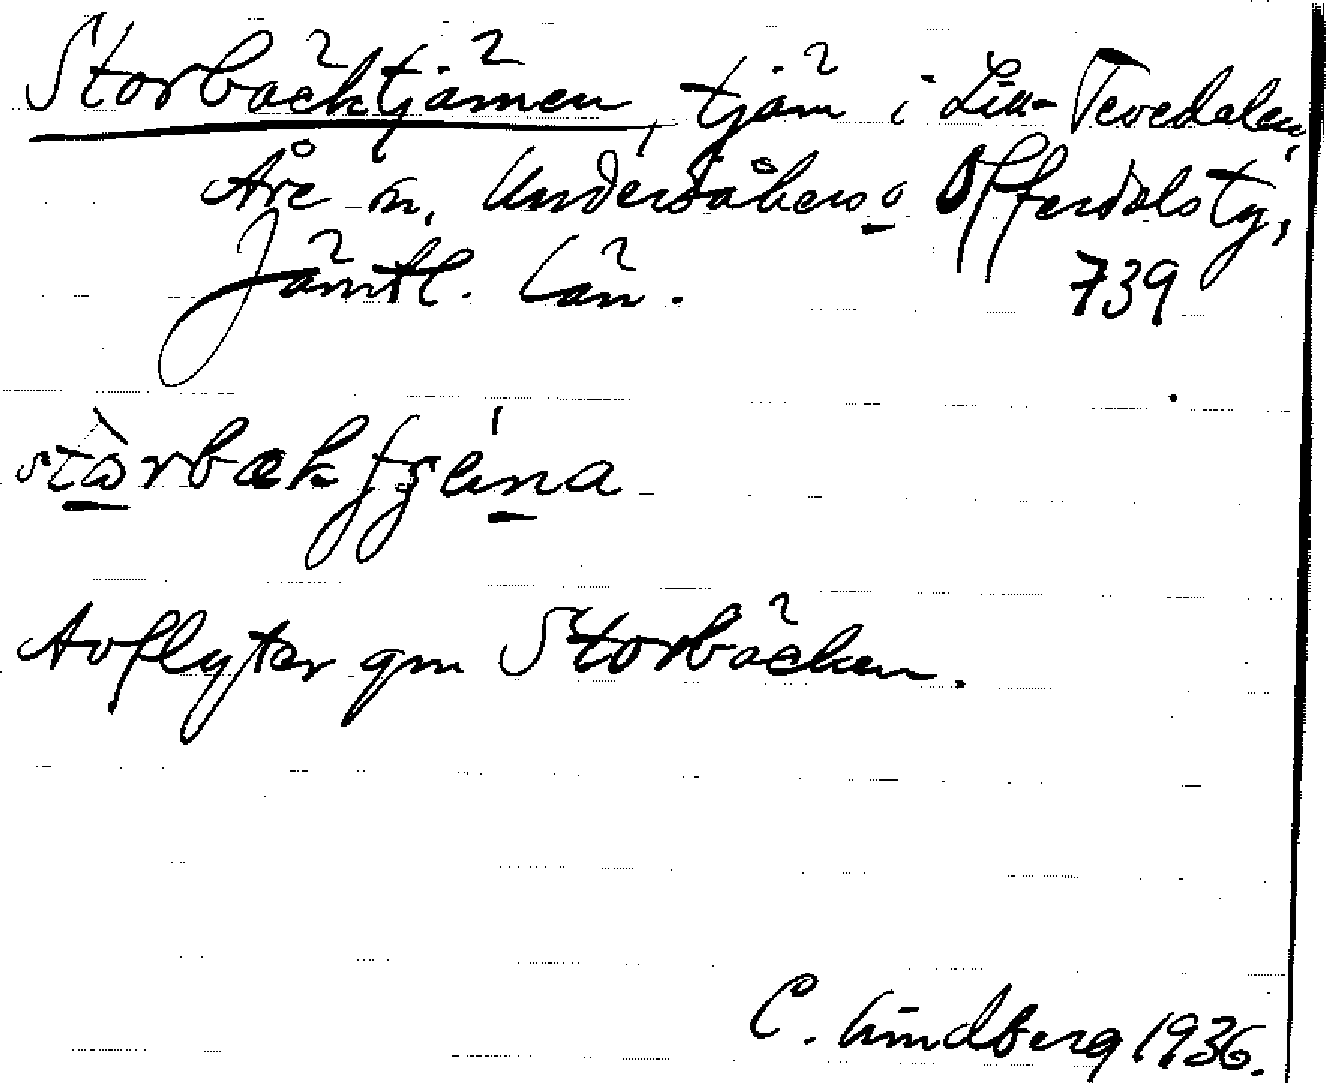 Storbäcktjärnen, tjärn i Lill-Tevedalen,
Åre sn, Undersåkers o Offerdals tg,
Jämtl. län. 739
Avflyter gm Storbäcken.
C. Lindberg 1936.